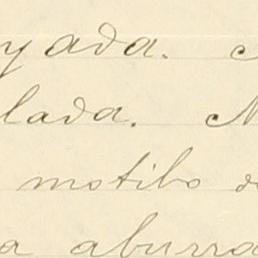 yada.
lada. N
motibo d
a aburra